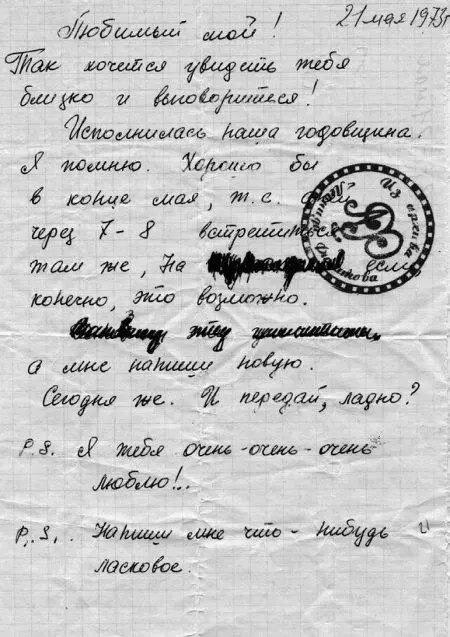 21 мая 1973г
Любимый мой!
Так хочется увидеть тебя
близко и выговориться!
Исполнилась наша годовщина.
Я помню. Хорошо бы
в конце мая, т.е.
через 7-8 встретиться
там же, На если
конечно, это возможно.
а мне напиши новую.
Сегодня же. И передай, ладно?
P.S. Я тебя очень-очень-очень
люблю!..
P.S. Напиши мне что-нибудь
ласковое.
21
Из архива